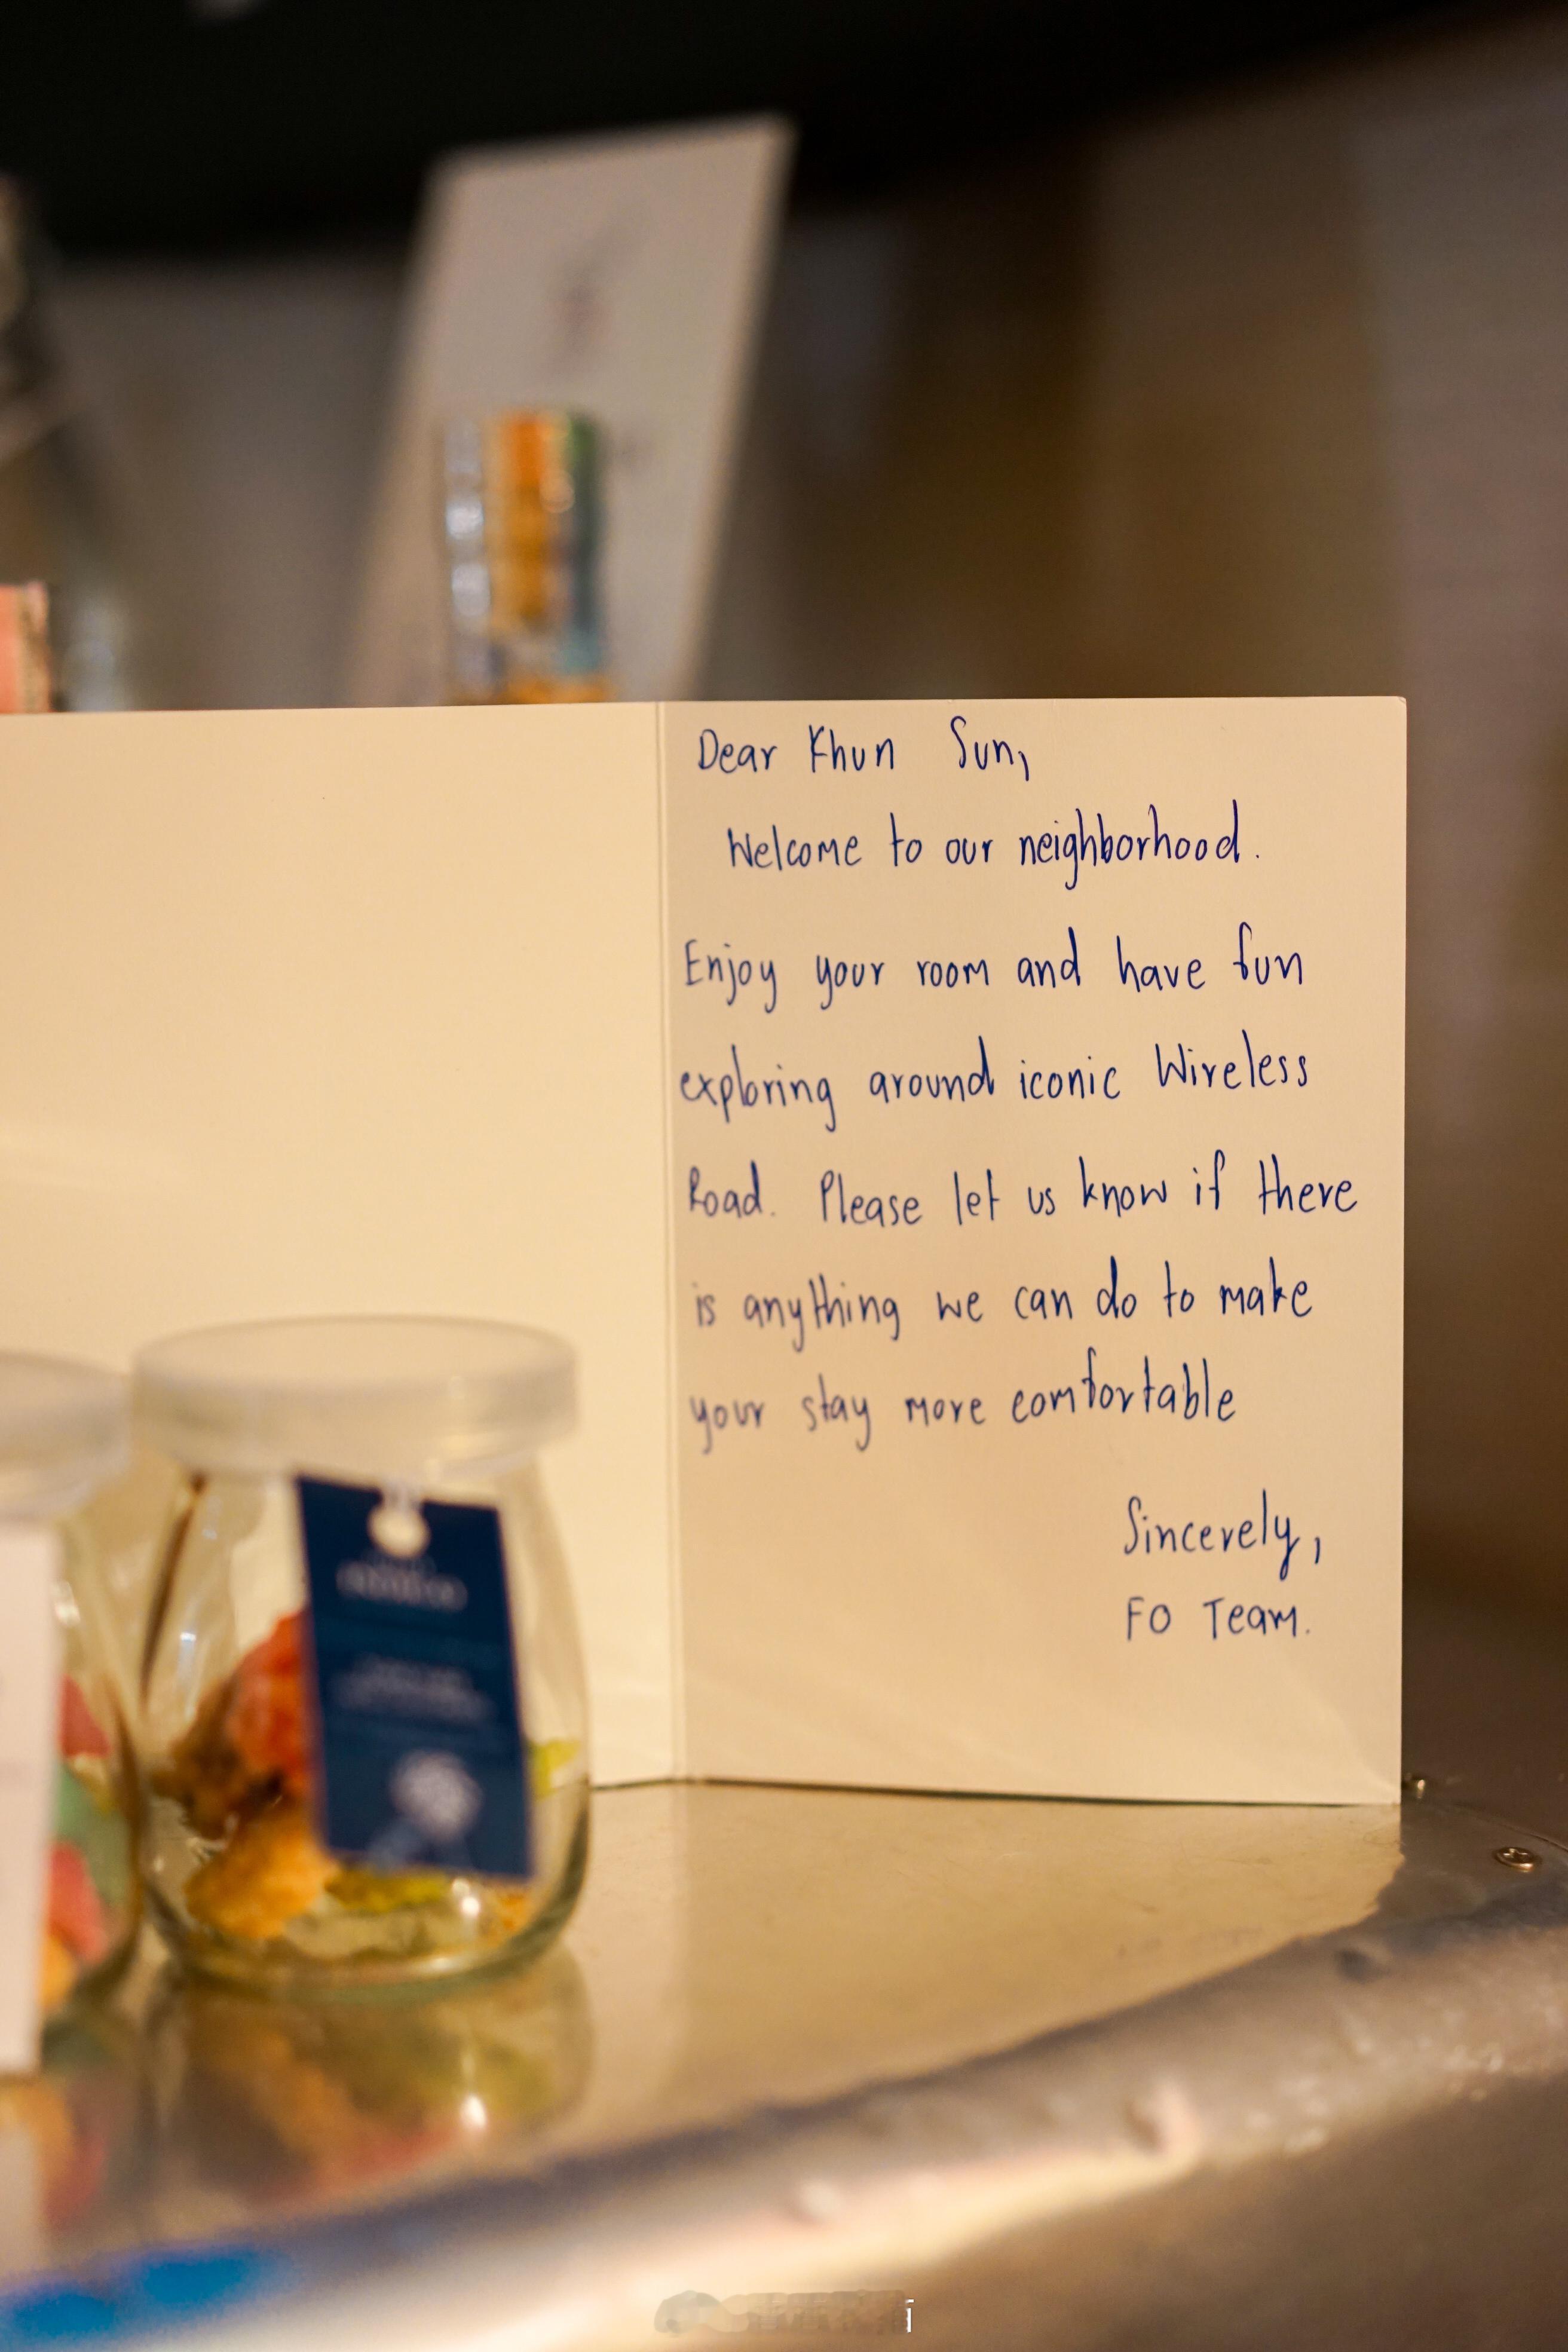 Dear Khun Sun,
Welcome to our neighborhood.
Enjoy your room and have fun
exploring around iconic Wireless
Road. Please let us know if there
is anything we can do to make
your stay more comfortable
Sincerely,
FO Team.